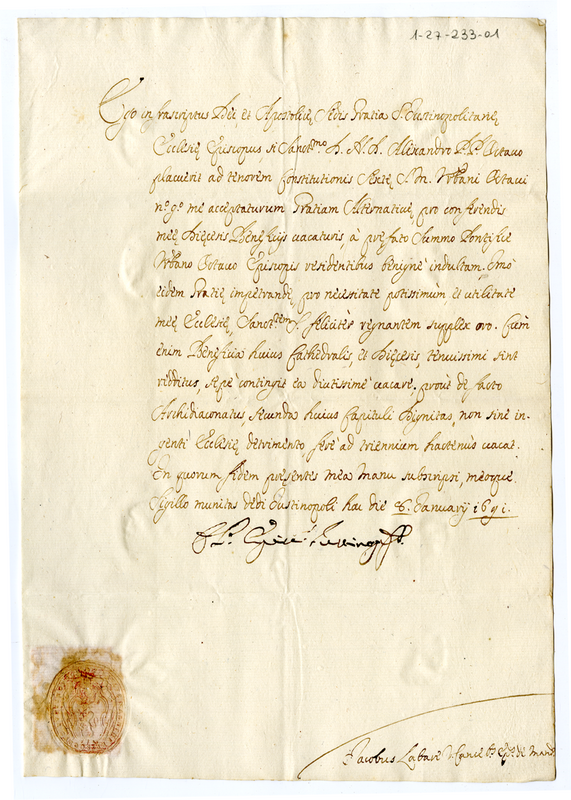 1-27-233-01
Ego infrascriptus Dei, et Apostolicę Sedis Gratia Iustinopolitanę
Ecclesię Episcopus, si Sanct.mo D. N. D. Alexandro P.P. Octavo
placuerit ad tenorem Constitutionis Sextę S. M. Urbani Octavi
me accęptaturum Gratiam Alternativę pro conferendis
meę Dięcesis Benęficijs vacaturis, à pręfato Summo Pontifice
Urbano Octavo Episcopis residentibus benignè indultam. Imò
eidem Gratię impetrandę pro necessitate potissimùm et utilitate
meę Ecclesię, Sanct.tem S. felicitèr regnantem supplex oro. Cum
enim Benęficia huius Cathedralis, et Dięcesis, tenuissimi sint
redditus, sępè contingit ea diutissimè vacare, prout de facto
Archidiaconatus, secunda huius Capituli Dignitas, non sine in-
genti Ecclesię detrimento ferè ad triennium hactenus vacat.
In quorum fidem pręsentes mea manu subscripsi, meoque
Sigillo munitas dedi Iustinopoli hac die 8. Ianuarij 1691.
Jacobus Cancell. de Mand.